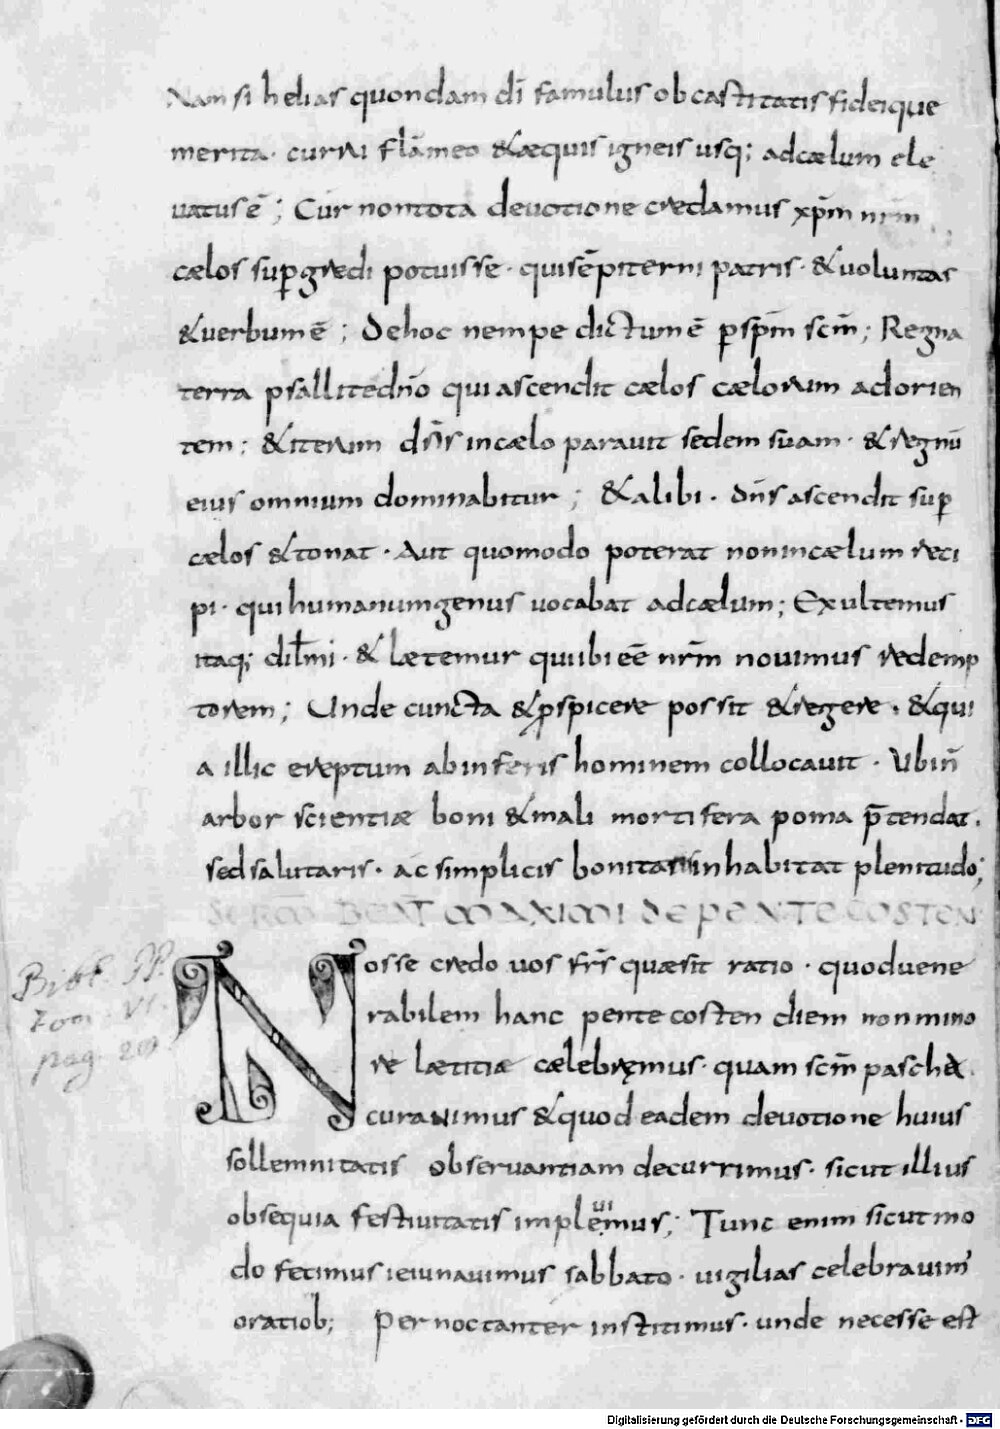 Nam si helias quondam dī famulus ob castitatis fideique
merita· curru flāmeo &æquis igneis usq; ad cælum ele
uatus ē; Cur non tota deuotione credamus xp̄m nr̄m
cælos sup̱gredi potuisse· qui sēpiterni patris· & uoluntas
& uerbum ē; De hoc nempe dictum ē p̱ sp̄m sc̄m; Regna
terra psallite dn̄o qui ascendit cælos cælorum ad orien
tem; & iterum dn̄s in cælo parauit sedem suam· & regnū
eius omnium dominabitur; & alibi· dn̄s ascendit sup̱
cælos & tonat· Aut quomodo poterat non in cælum reci
pi· qui humanum genus uocabat ad cælum; Exultemus
itaq; dil̄mi· & lætemur qui ibi eē nr̄m nouimus redemp
torem; Unde cuncta & p̱spicere possit & regere· & qui
a illic ereptum ab inferis hominem collocauit· Ubi n̄
arbor scientiæ boni & mali mortifera poma p̄tendat·
sed salutaris· ac simplicis bonitatis inhabitat plenitudo;
SERMO BEAT MAXIMI DE PENTECOSTEN
Nosse credo uos fr̄s quæsit ratio· quod uene
rabilem hanc pentecosten diem non mino
re lætitiæ cælebręmus· quam sc̄m pascha
curauimus & quod eadem deuotione huius
sollemnitatis obseruantiam decurrimus· sicut illius
obsequia festiuitatis implēmus; Tunc enim sicut mo
ui
do fecimus ieiunauimus sabbato· uigilias celebrauim'
oratiob; Pernoctanter institimus· unde necesse est
Bibl. PP.
Tom. VI.
pag.
Digitalisierung gefördert durch die Deutsche Forschungsgemeinschaft - DFG